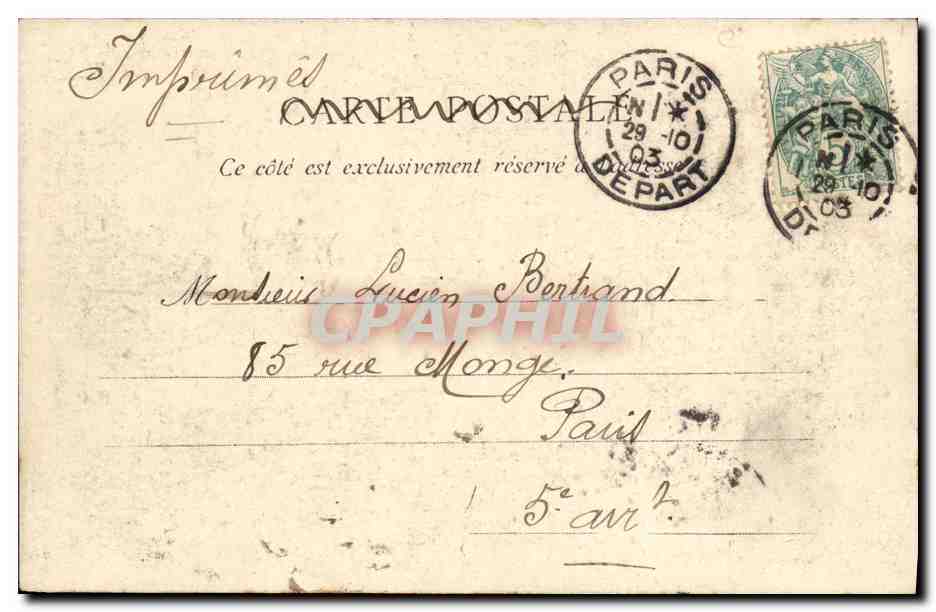 Imprimés
CARTE POSTALE
Ce côté est exclusivement réservé à l'adresse
PARIS
N 1
29 -10
03
DEPART
5
PARIS
N 1
29 -10
03
Monsieur Lucien Bertrand.
CPAPHIL
85 rue Monge.
Paris
5e arrt.